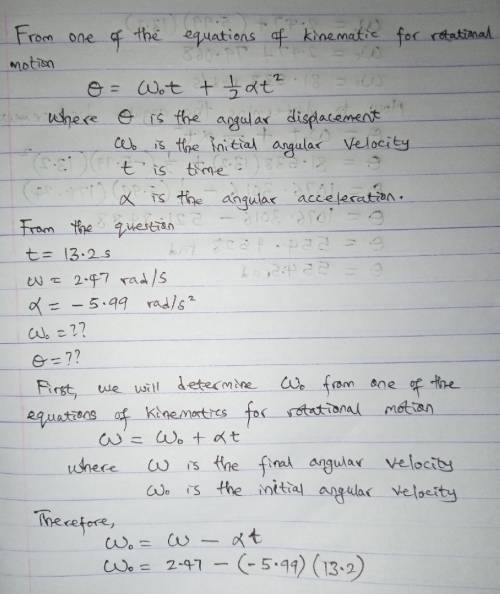 From one of the equations of kinematic for rotational
motion
θ = ω₀t + ½αt²
where θ is the angular displacement
ω₀ is the initial angular velocity
t is time
α is the angular acceleration.
From the question
t = 13.2 s
ω = 2.47 rad/s
α = -5.99 rad/s²
ω₀ = ??
θ = ??
First, we will determine ω₀ from one of the
equations of kinematics for rotational motion
ω = ω₀ + αt
where ω is the final angular velocity
ω₀ is the initial angular velocity
Therefore,
ω₀ = ω - αt
ω₀ = 2.47 - (-5.99)(13.2)